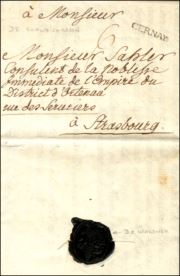 à Monsieur
CERNAY
6
Monsieur Sahler
Consulent de la Noblesse
Immediate de l'Empire du
District d'Ortenau
rue des Serruriers
à Strasbourg.